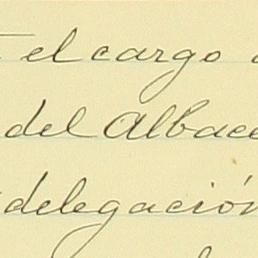 el cargo
del Albace
delegación